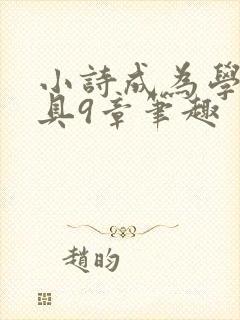 小詩成為學
具9章筆趣
趙昀